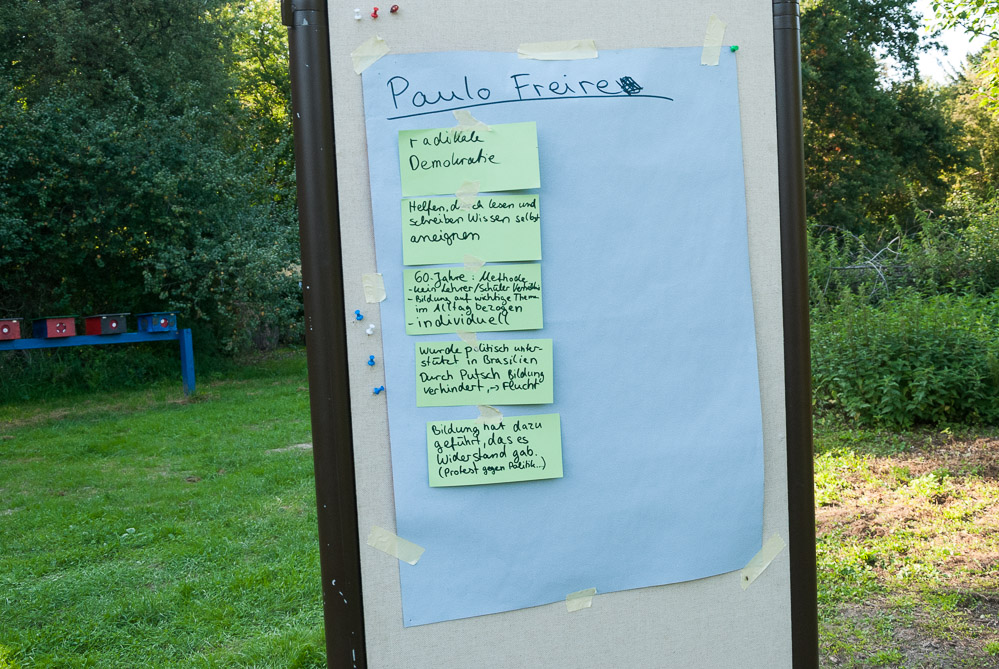 Paulo Freire
radikale
Demokratie
Helfen, durch lesen und
schreiben Wissen selbst
aneignen
60. Jahre: Methode
- kein Lehrer/Schüler Verhältnis
- Bildung auf wichtige Thema
im Alltag bezogen
- individuell
Wurde politisch unter-
stützt in Brasilien
Durch Putsch Bildung
verhindert, → Flucht
Bildung hat dazu
geführt, das es
Widerstand gab.
(Protest gegen Politik...)